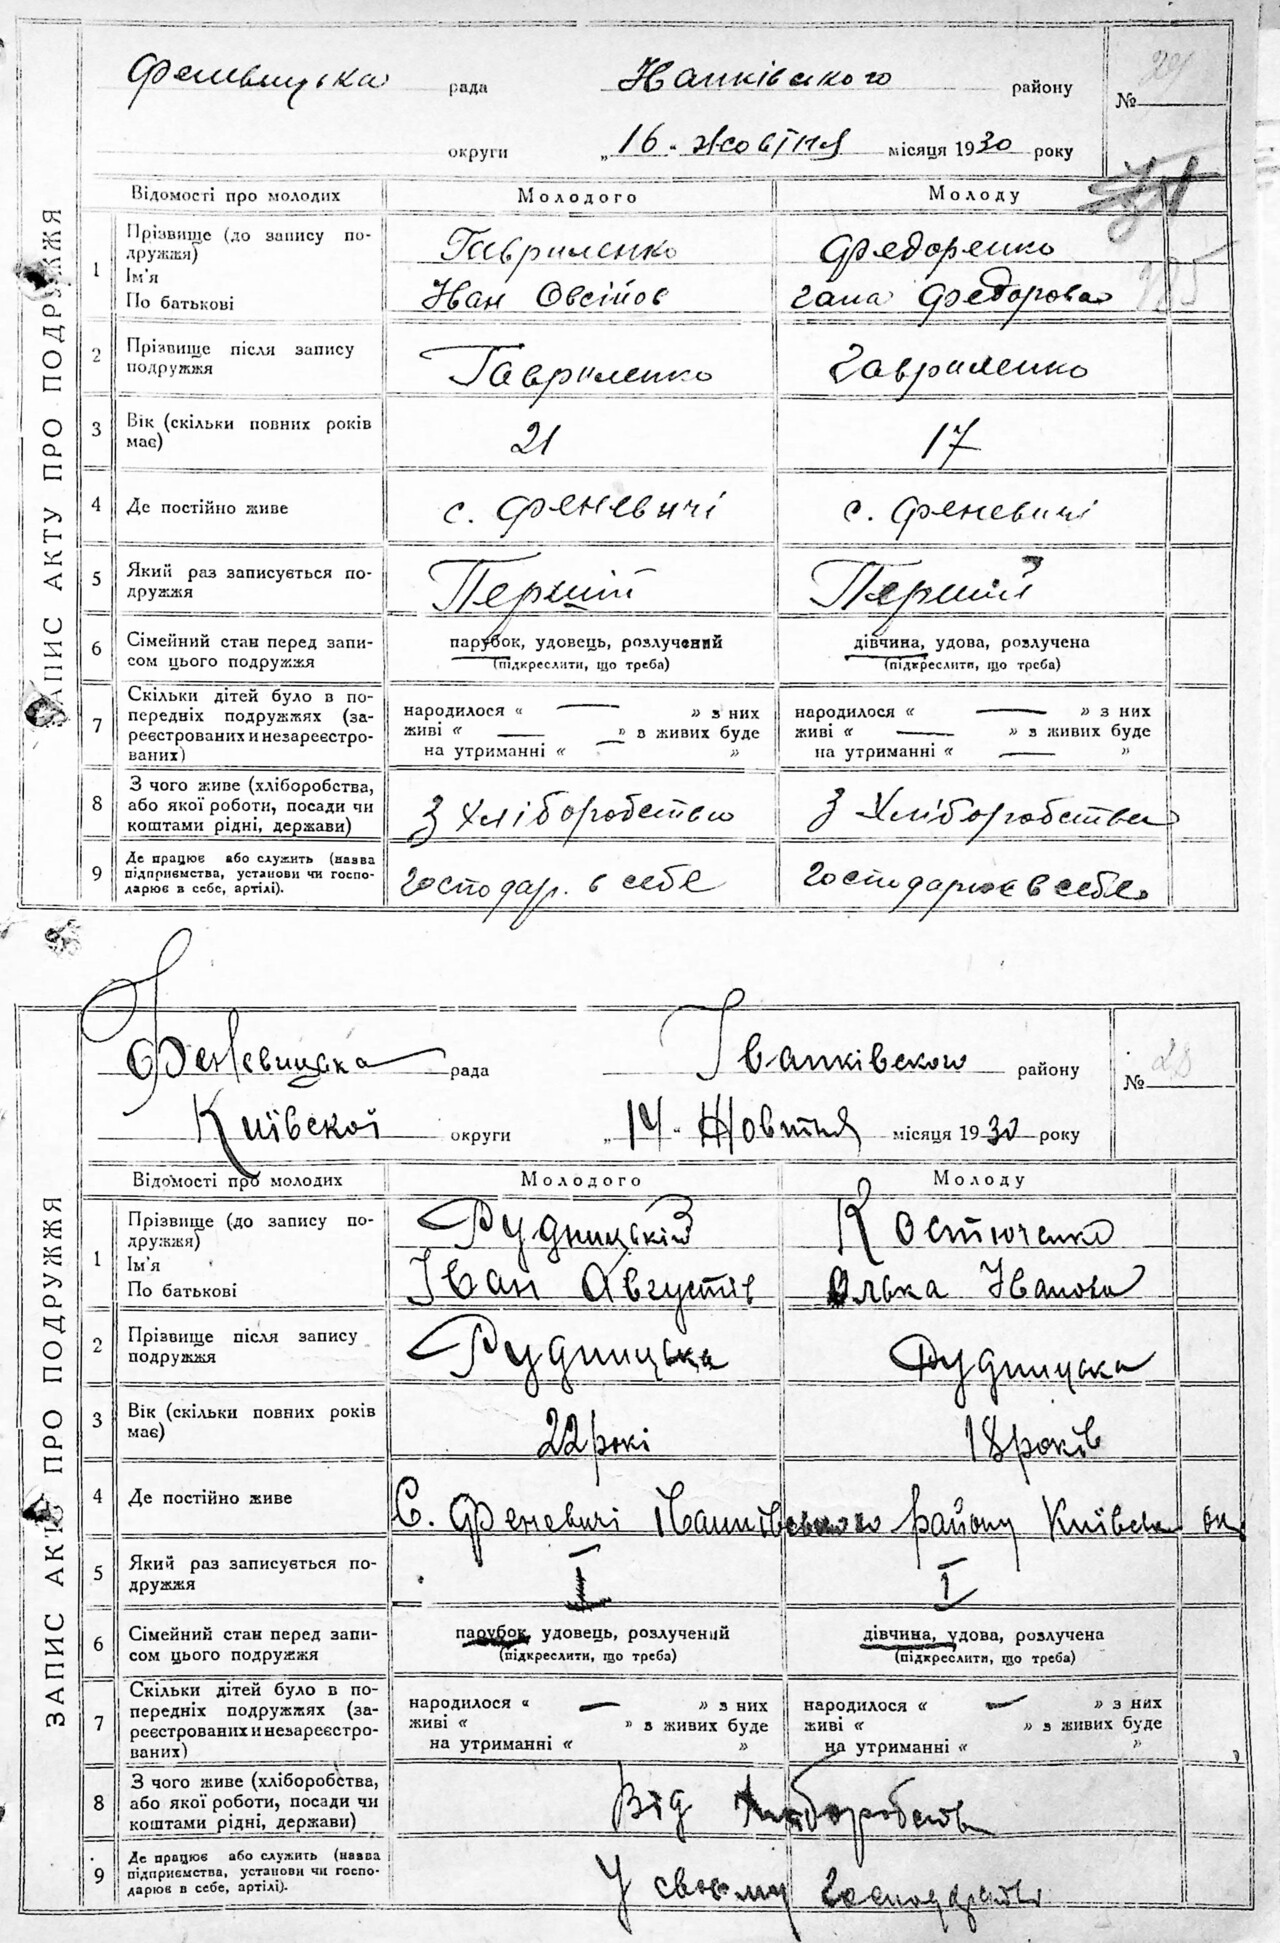 ЗАПИС АКТУ ПРО ПОДРУЖЖЯ
рада Иванківського району №
округи „16. жовтня місяця 1930 року
Відомості про молодих Молодого Молоду
1 Прізвище (до запису подружжя) Гавриленко Федоренко
Ім'я По батькові Іван Овсійов Гана Федорова
2 Прізвище після запису подружжя Гавриленко Гавриленко
3 Вік (скільки повних років має) 21 17
4 Де постійно живе с. Феневичі с. Феневичі
5 Який раз записується подружжя Перший Перший
6 Сімейний стан перед записом цього подружжя парубок, удовець, розлучений дівчина, удова, розлучена
(підкреслити, що треба) (підкреслити, що треба)
7 Скільки дітей було в попередніх подружжях (зареєстрованих и незареєстрованих) народилося « — » з них народилося « — » з них
живі « — » в живих буде живі « — » в живих буде
на утриманні « — » на утриманні « — »
8 З чого живе (хліборобства, або якої роботи, посади чи коштами рідні, держави) З хліборобства З Хліборобства
9 Де працює або служить (назва підприємства, установи чи господарює в себе, артілі). господар. в себе господарює в себе
ЗАПИС АКТУ ПРО ПОДРУЖЖЯ
Феневицька рада Іванківского району № 28
Київскої округи „14. Жовтня місяця 1930 року
Відомості про молодих Молодого Молоду
1 Прізвище (до запису подружжя) Рудницькій Костюченко
Ім'я По батькові Іван Августів Олька Іванова
2 Прізвище після запису подружжя Рудницька Рудницька
3 Вік (скільки повних років має) 22 рокі 18 років
4 Де постійно живе С. Феневичі Іванківського району Київськ ок
5 Який раз записується подружжя I I
6 Сімейний стан перед записом цього подружжя парубок, удовець, розлучений дівчина, удова, розлучена
(підкреслити, що треба) (підкреслити, що треба)
7 Скільки дітей було в попередніх подружжях (зареєстрованих и незареєстрованих) народилося « — » з них народилося « — » з них
живі « » в живих буде живі « » в живих буде
на утриманні « » на утриманні « »
8 З чого живе (хліборобства, або якої роботи, посади чи коштами рідні, держави) Від
9 Де працює або служить (назва підприємства, установи чи господарює в себе, артілі). У своєму